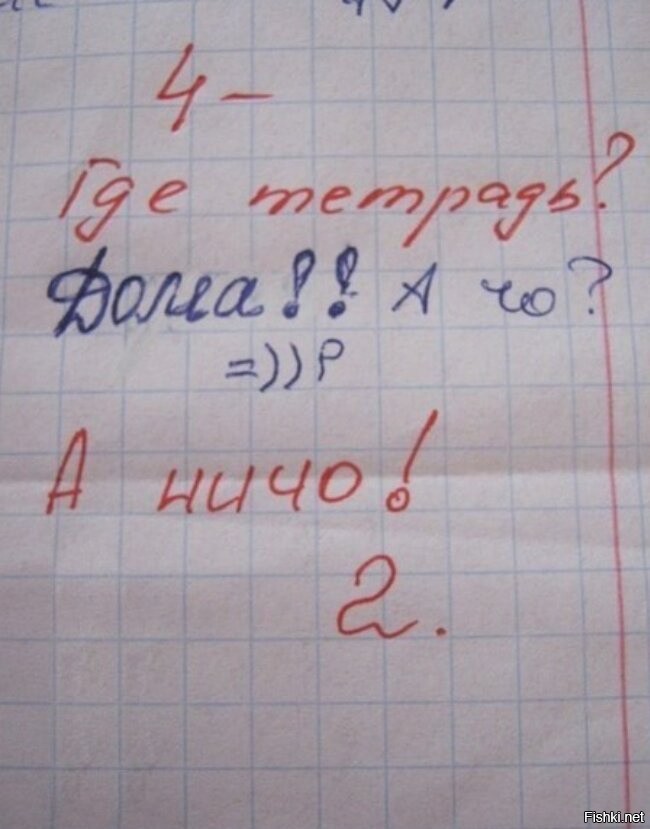 4-
Где тетрадь?
Дома!! А чо?
=))P
А ничо!
2.
Fishki.net